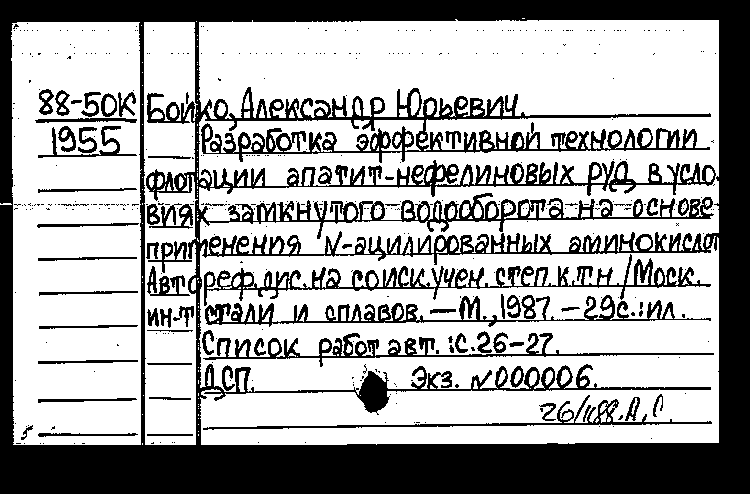 88-50К Бойко, Александр Юрьевич.
1955 Разработка эффективной технологии
флотации апатит-нефелиновых руд в усло-
виях замкнутого водооборота на основе
применения N-ацилированных аминокислот
Автореф.дис.на соиск.учен.степ.к.т.н./Моск.
ин-т стали и сплавов.—М.,1987.—29с.:ил.
Список работ авт.:с.26-27.
ДСП. Экз. №000006.
26/II88.А,С.
5